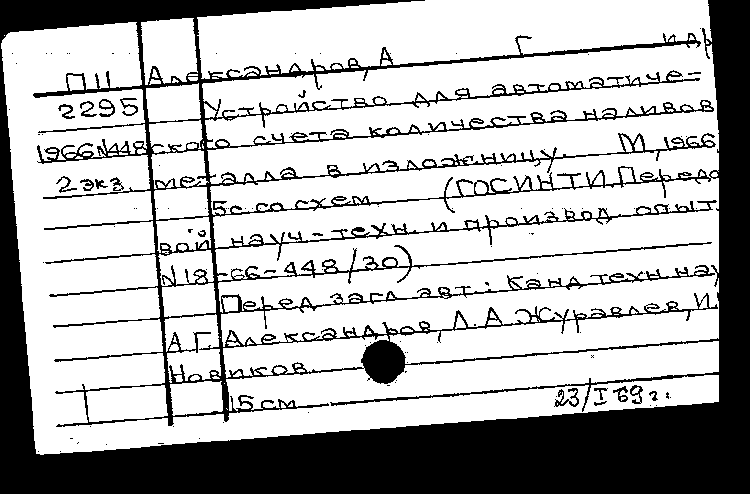 П11 Александров, А Г и др
2295 Устройство для автоматиче-
1966 N448 ского счета количества наливов
2 экз. металла в изложницу. М, 1966
5с со схем. (ГОСИНТИ. Передо
вой науч-техн. и производ. опыт.
N 18-66-448/30)
Перед загл авт.: Канд техн. нау
А.Г. Александров, Л.А. Журавлев, И.
Новиков.
15 см 23/I 69 г.